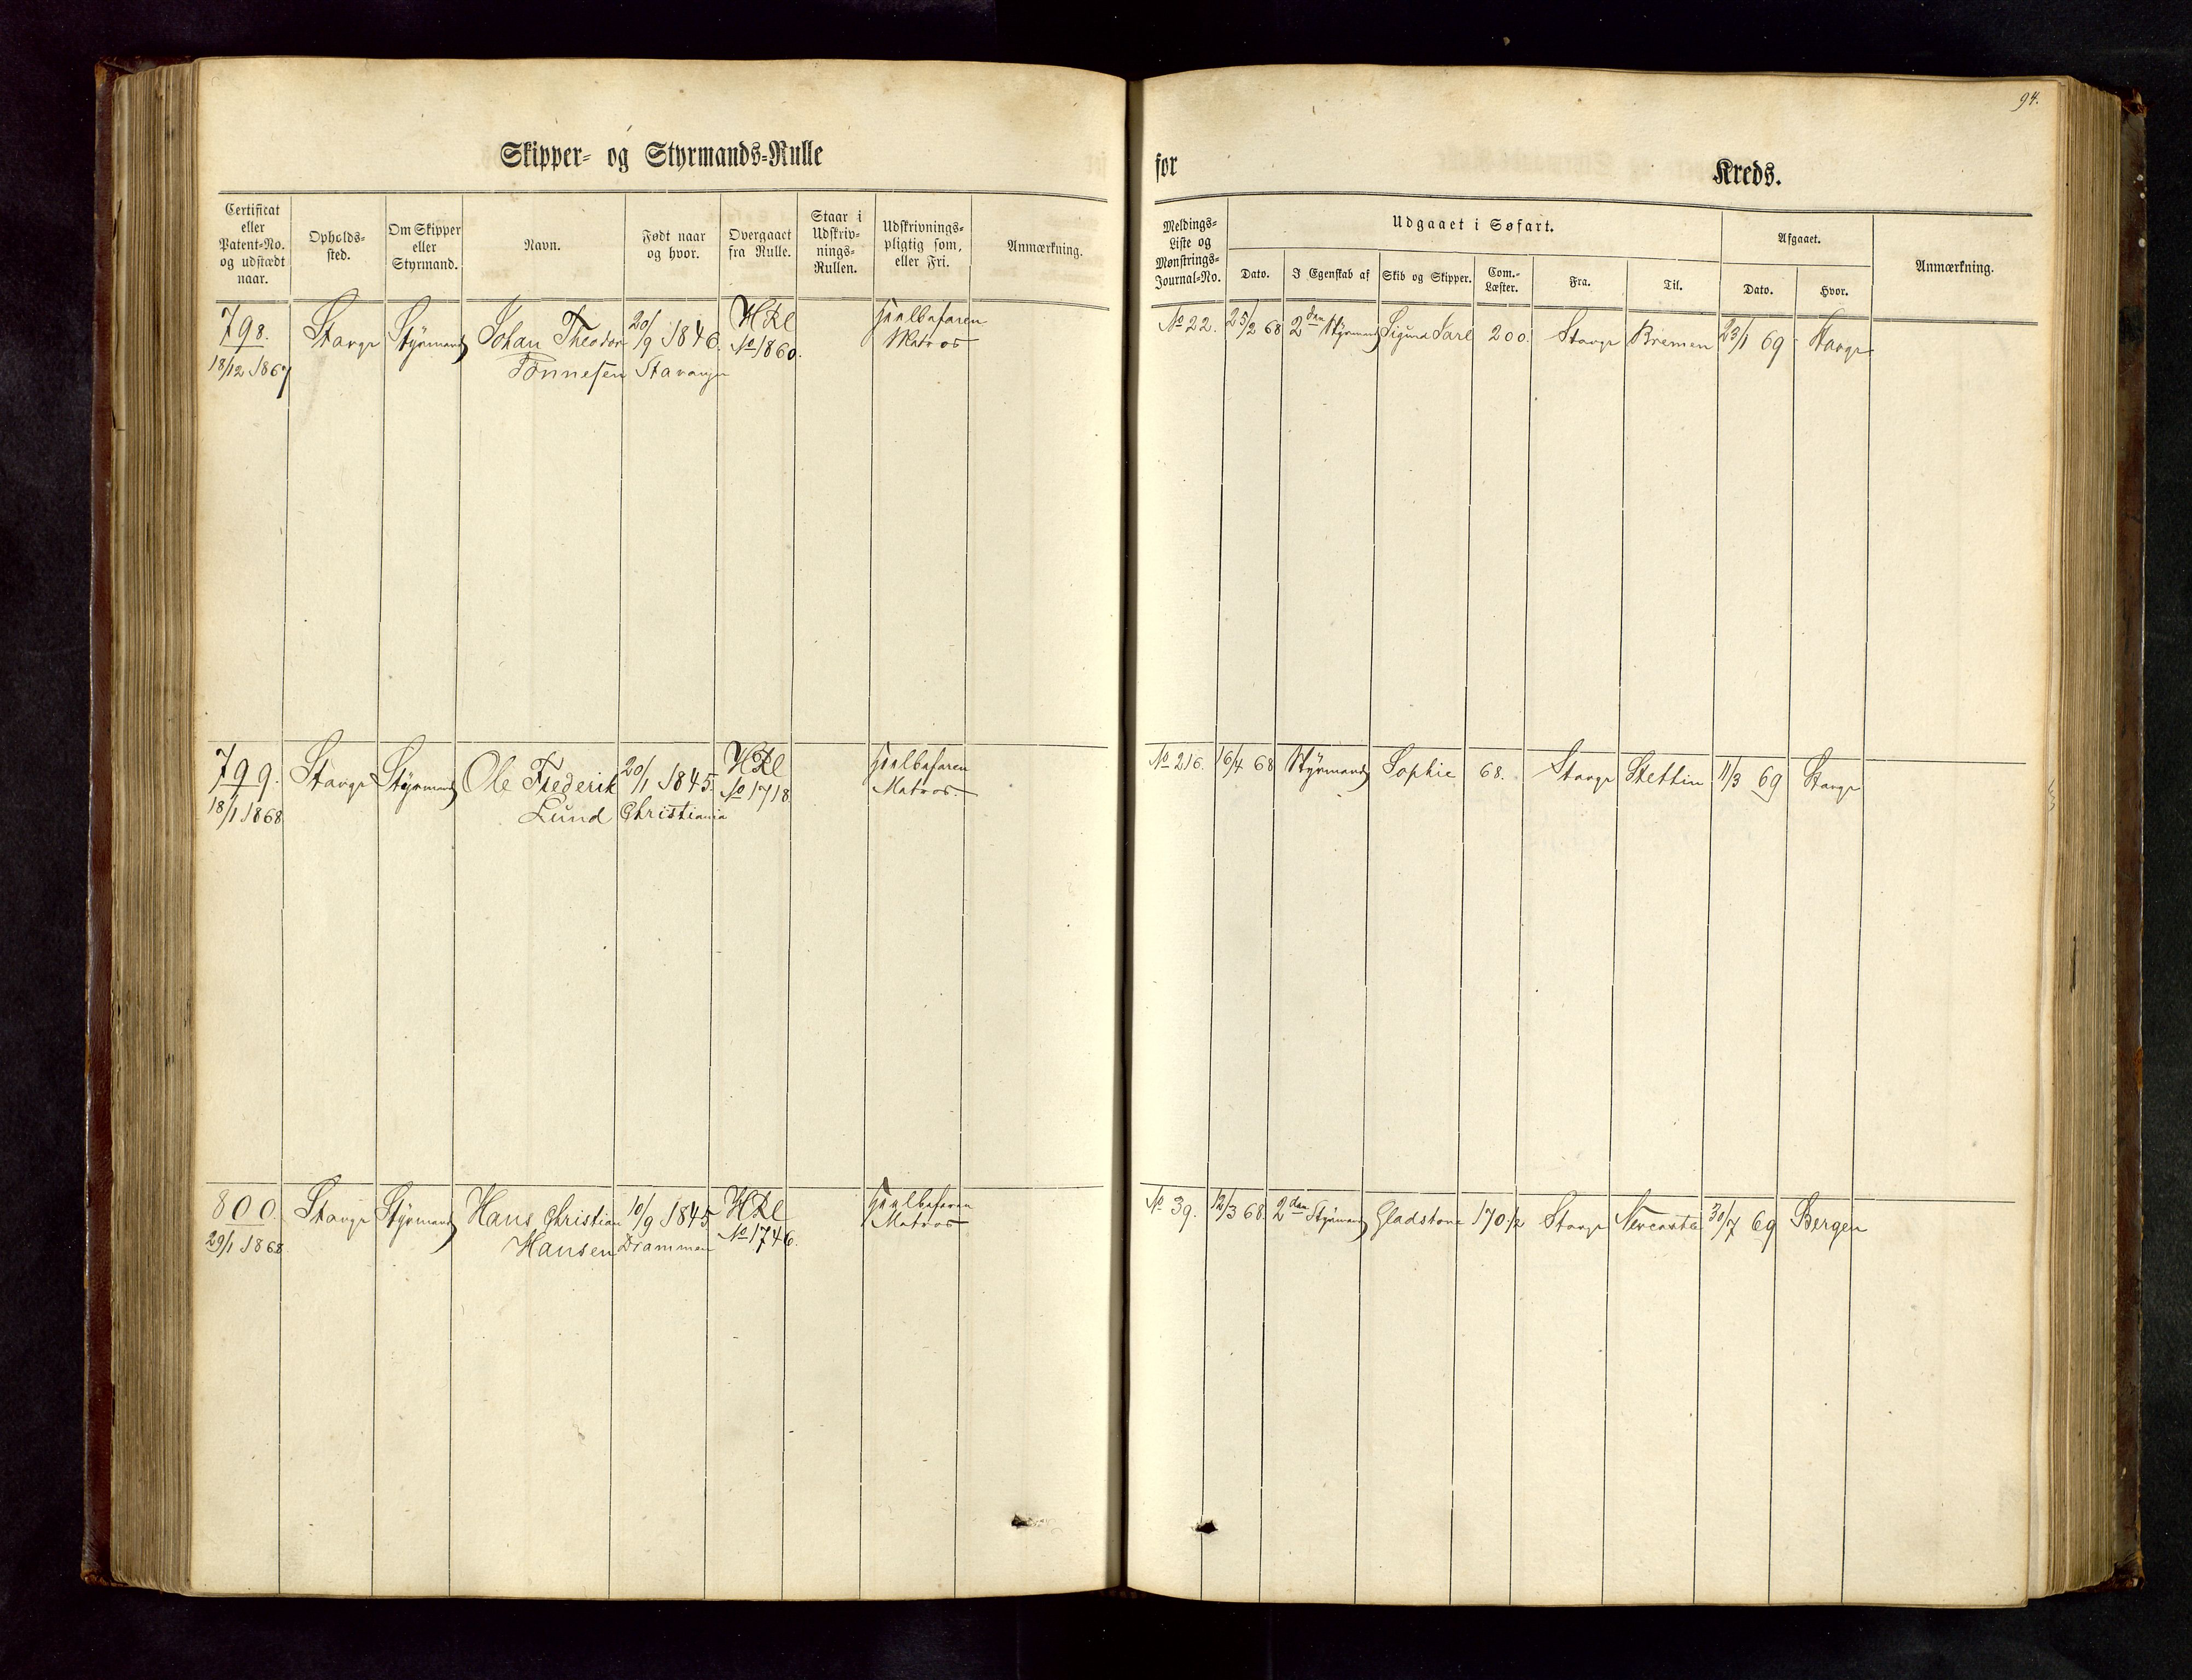 94.
Skipper- og Styrmands-Rulle
for Kreds.
Certificat eller Patent-No. og udstædt naar.
Opholds-sted.
Om Skipper eller Styrmand.
Navn.
Født naar og hvor.
Overgaaet fra Rulle.
Staar i Udskriv-nings-Rullen.
Udskrivnings-pligtig som, eller Fri.
Anmærkning.
Meldings-Liste og Mønstrings-Journal-No.
Udgaaet i Søfart.
Dato.
I Egenskab af
Skib og Skipper.
Com.-Læster.
Fra.
Til.
Afgaaet.
Dato.
Hvor.
Anmærkning.
798. Stavgr Styrmand Johan Theodor 20/9 1846. HRl
18/12 1867 Tönnesen Stavanger No 1860.
Matros
No 22. 25/2 68 2den Styrmand Sigund Jarl 200. Stavgr Bremen 23/1 69 Stavgr
799. Stavgr Styrmand Ole Frederik 20/1 1845. HRl
18/1 1868 Lund Christiania No 1718
Matros.
No 216. 16/4 68 Styrmand Sophie 68. Stavgr Stettin 11/3 69 Stavgr
800. Stavgr Styrmand Hans Christian 10/9 1845 HRl
29/1 1868 Hansen Drammen No 1746.
Matros
No 39. 12/3 68. 2den Styrmand Gladstone 170 1/2 Stavgr Newcastle 30/7 69 Bergen